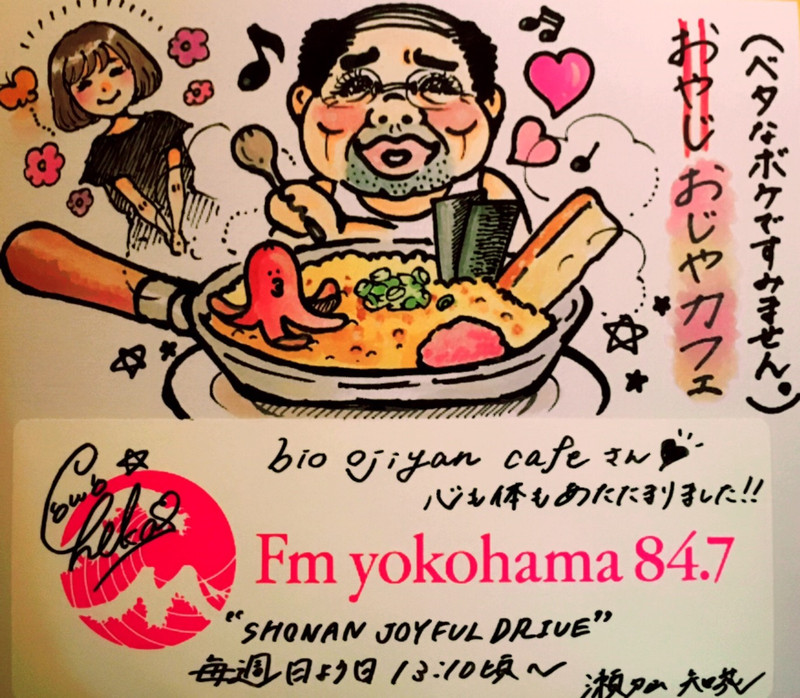 (ベタなボケですみません。)
おやじおじやカフェ
bio ojiyan cafe さん
心も体もあたたまりました!!
Fm yokohama 84.7
"SHONAN JOYFUL DRIVE"
毎週日よう日 13:10頃〜